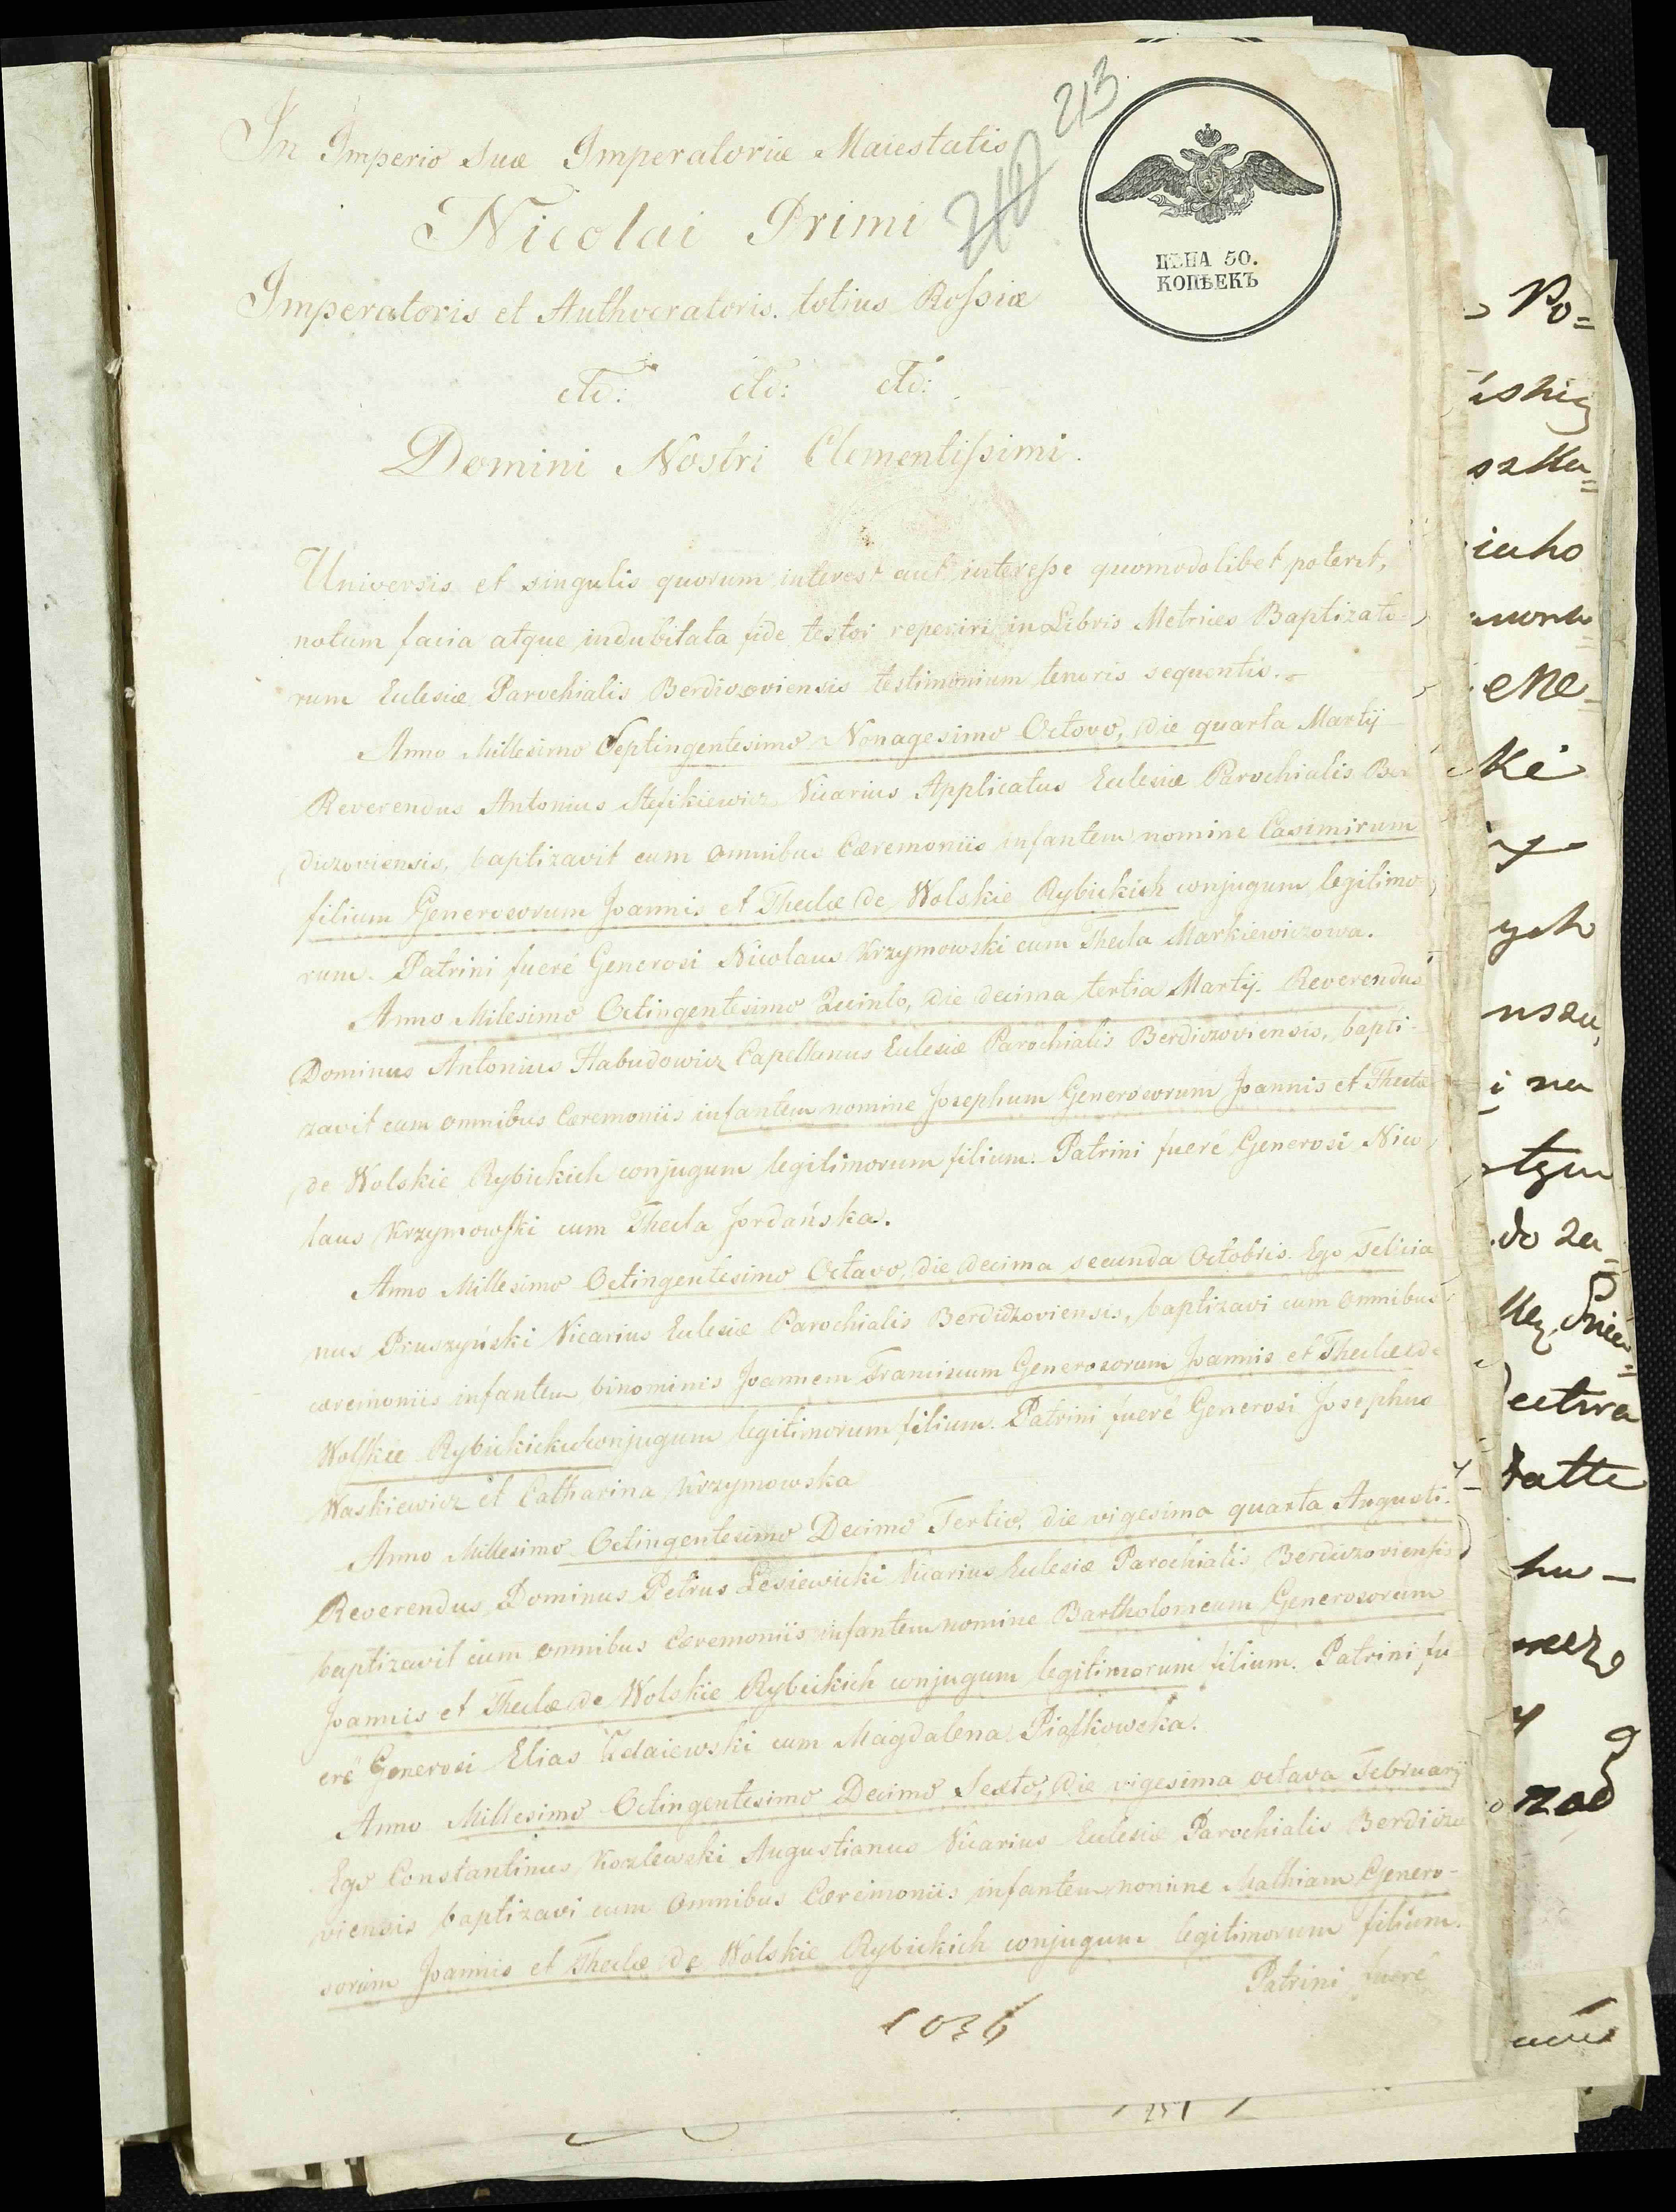 213
210
In Imperio Suæ Imperatoriæ Maiestatis
Nicolai Primi
ЦѢНА 50.
КОПѢЕКЪ
Imperatoris et Authocratoris totius Rossiæ
etc: etc: etc:
Domini Nostri Clementissimi.
Universis et singulis quorum interest aut interesse quomodolibet poterit,
notum facio atque indubitata fide testor reperiri in Libris Metrices Baptizato-
rum Eclesiæ Parochialis Berdiczoviensis testimonium tenoris sequentis.
Anno Millesimo Septingentesimo Nonagesimo Octovo, die quarta Martij
Reverendus Antonius Stefikiewicz Vicarius Applicatus Eclesiæ Parochialis Ber
diczoviensis, baptizavit cum omnibus Cæremoniis infantem nomine Casimirum
filium Generosorum Joannis et Theclæ de Wolskie Rybickich conjugum legitimo-
rum. Patrini fueré Generosi Nicolaus Krzymowski cum Thecla Markiewiczowa.
Anno Milesimo Octingentesimo Quinto, die decima tertia Martij. Reverendus
Dominus Antonius Habudowicz Capellanus Eclesiæ Parochialis Berdiczoviensis, bapti-
zavit cum omnibus Cæremoniis infantem nomine Josephum Generosorum Joannis et Theclæ
de Wolskie Rybickich conjugum legitimorum filium. Patrini fueré Generosi Nico
laus Krzymowski cum Thecla Jordańska.
Anno Millesimo Octingentesimo Octavo, die decima secunda Octobris. Ego Felicia
nus Pruszyński Vicarius Eclesiæ Parochialis Berdiczoviensis, baptizavi cum omnibus
cæremoniis infantem binominis Joannem Franciscum Generosorum Joannis et Theclæ de
Wolskie Rybickich conjugum legitimorum filium. Patrini fueré Generosi Josephus
Waskiewicz et Catharina Krzymowska
Anno Millesimo Octingentesimo Decimo Tertio, die vigesima quarta Augusti.
Reverendus Dominus Petrus Lesiewicki Vicarius Eclesiæ Parochialis Berdiczoviensis
baptizavit cum omnibus Cæremoniis infantem nomine Bartholomeum Generosorum
Joannis et Theclæ de Wolskie Rybickich conjugum legitimorum filium. Patrini fu
eré Generosi Elias Zdaiewski cum Magdalena Piątkowska.
Anno Millesimo Octingentesimo Decimo Sexto, die vigesima octava Februarij
Ego Constantinus Kozlewski Augustianus Vicarius Eclesiæ Parochialis Berdiczo
viensis baptizavi cum omnibus Cæremoniis infantem nomine Mathiam Genero-
sorum Joannis et Theclæ de Wolskie Rybickich conjugum legitimorum filium.
Patrini fueré
1036
251